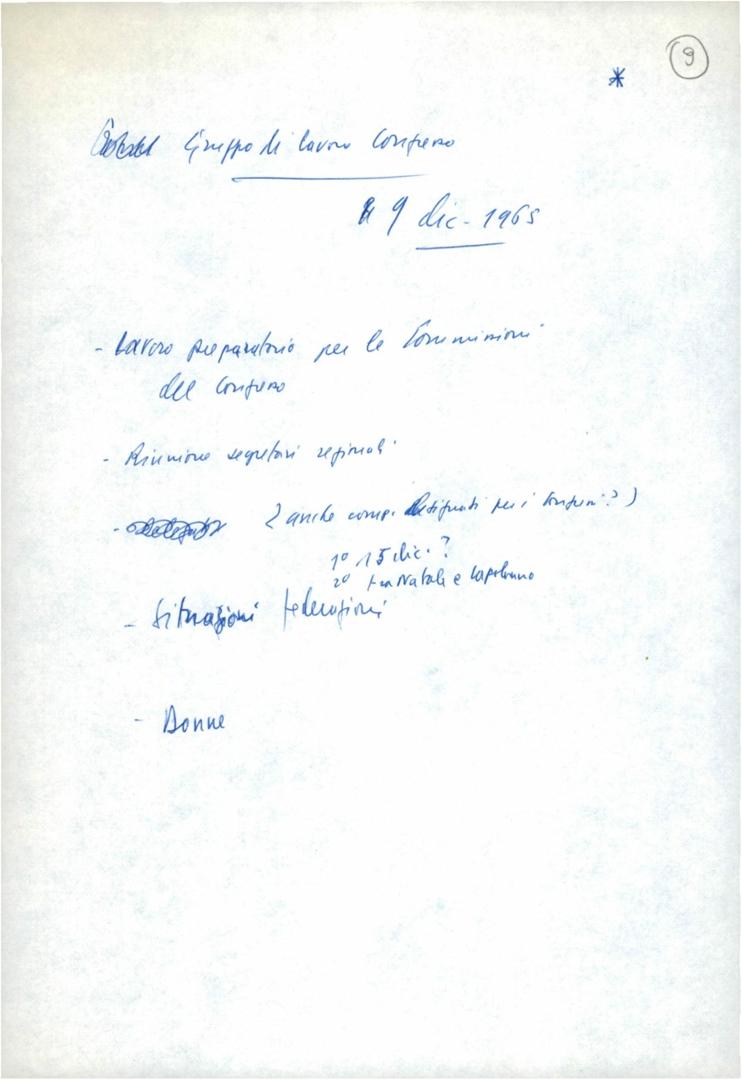 9
*
Gruppo di lavoro Congresso
9 dic. 1965
- Lavoro preparatorio per le Commissioni
del Congresso
- Riunione segretari regionali
- (anche comp. designati per i Congressi?)
1º 15 dic. ?
2º tra Natale e Capodanno
- Situazioni federazioni
- Donne